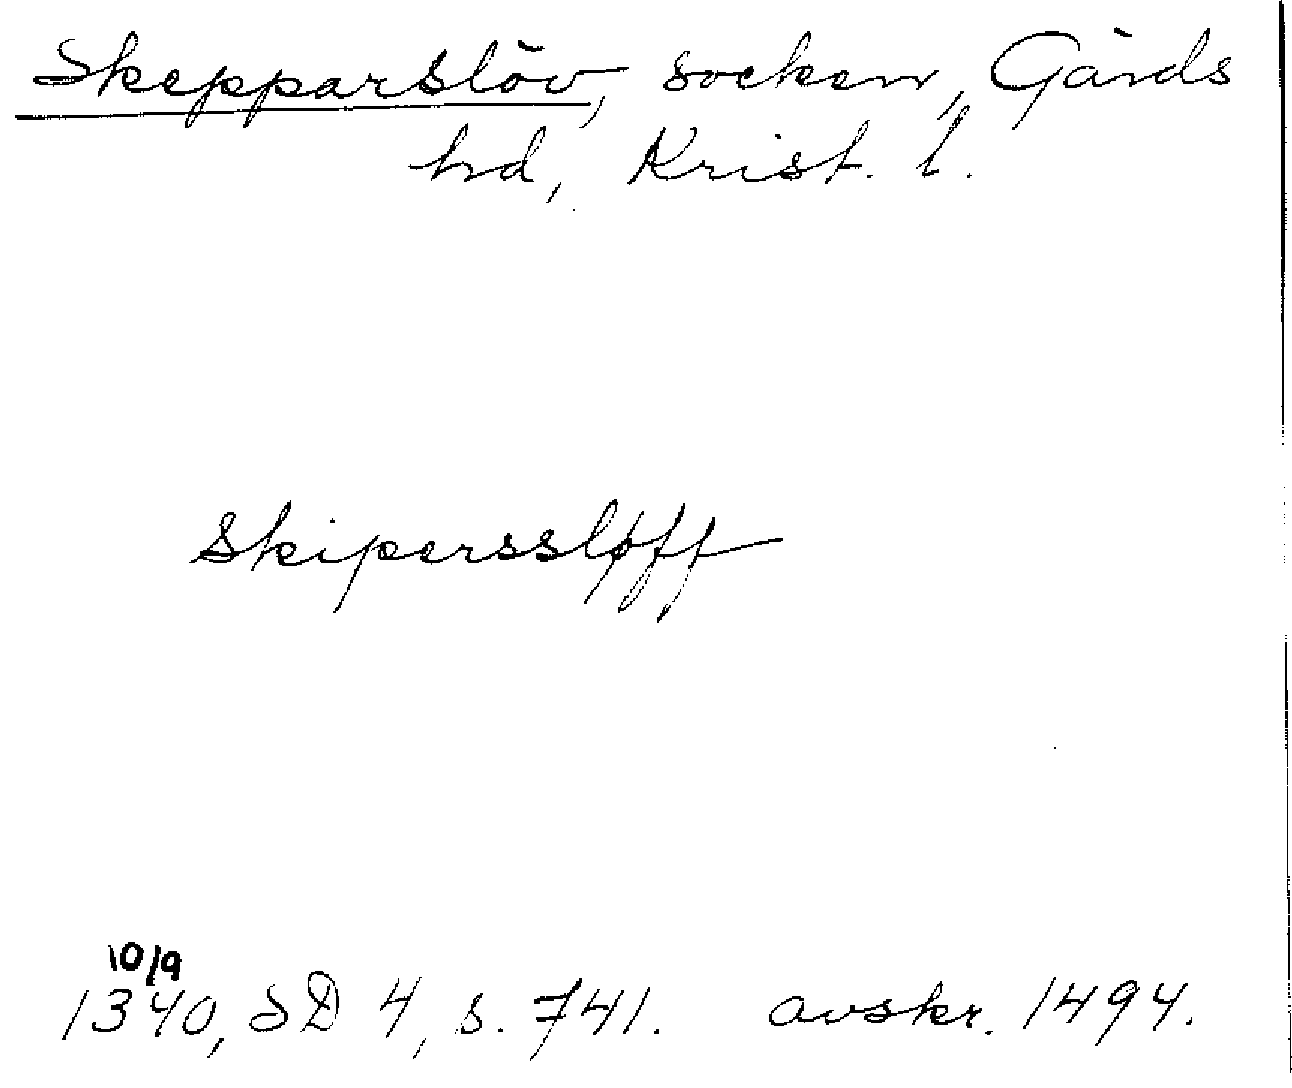 Skepparslöv, socken, Gärds
hd, Krist. l.
Skiperssløff
10/9
1340, SD 4, s. 741. avskr. 1494.